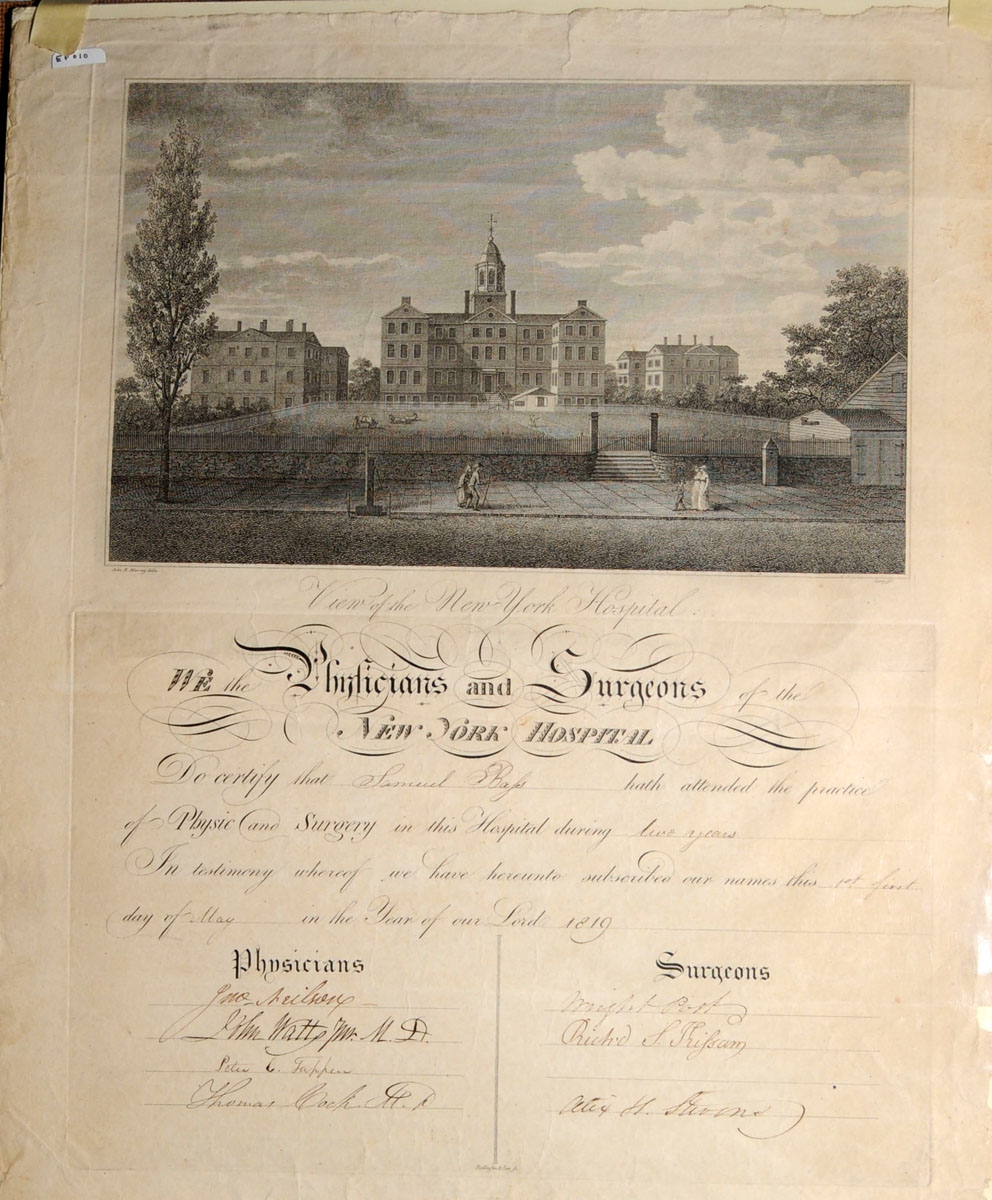 John R. Murray delin.
View of the New York Hospital.
WE the Physicians and Surgeons of the
NEW YORK HOSPITAL
Do certify that Samuel Bass hath attended the practice
of Physic and Surgery in this Hospital during two years
In testimony whereof we have hereunto subscribed our names this 1st first
day of May in the Year of our Lord 1819
Physicians
Jno Neilson
John Watts Jnr. M. D.
Peter C. Tappen
Thomas Cock M. D
Surgeons
Wright Post
Richd S. Kissam
Alex H. Stevens